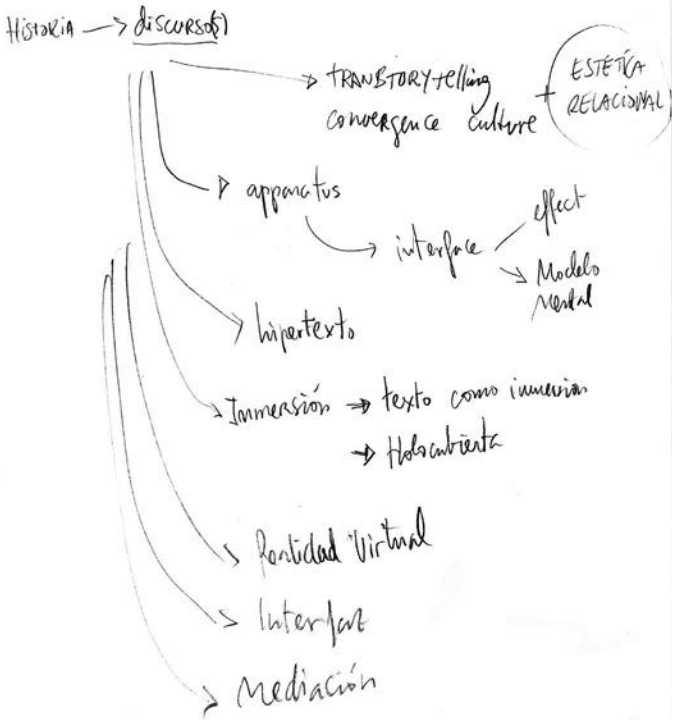 HistoRiA → discurso(s)
tRANBTORYtelling
convergence culture
+
ESTÉTICA
RELACIONAL
apparatus
interface
effect
Modelo
Mental
hipertexto
Inmersión → texto como inmersion
→ Holocubierta
Realidad Virtual
Interfaz
Mediación